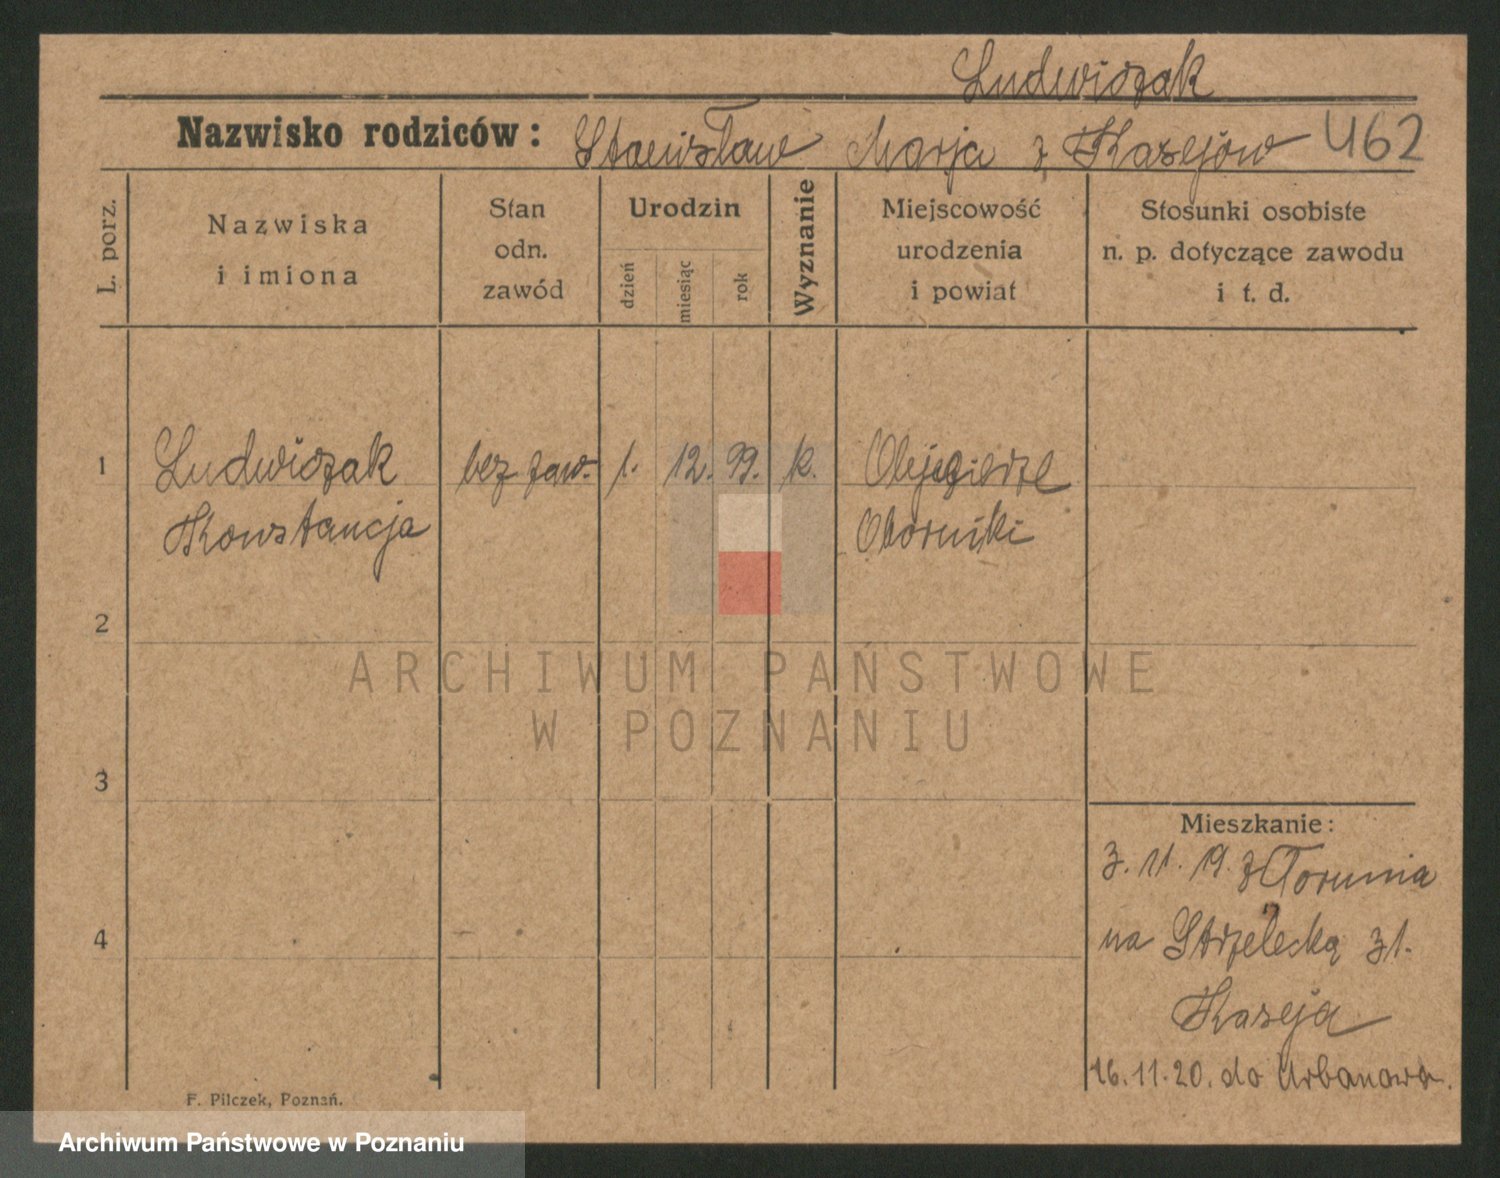 Ludwiczak
Nazwisko rodziców: Stanisław Marja z Kasejów 462
L. porz.
Nazwiska
i imiona
Stan
odn.
zawód
Urodzin
dzień
miesiąc
rok
Wyznanie
Miejscowość
urodzenia
i powiat
Stosunki osobiste
n. p. dotyczące zawodu
i t. d.
1 Ludwiczak bez zaw. 1. 12. 99. k. Objezierze
Konstancja Oborniki
2
ARCHIWUM PAŃSTWOWE
W POZNANIU
3
Mieszkanie:
3. 11. 19. z Torunia
4 na Strzelecką 31.
Kaseja
16.11.20. do Urbanowa.
F. Pilczek, Poznań.
Archiwum Państwowe w Poznaniu